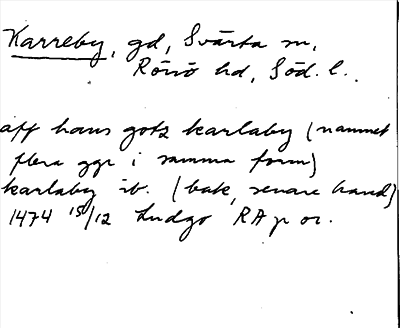 Karreby, gd, Svärta sn,
Rönö hd, Söd. l.
aff hans gotz karlaby (namnet
flera ggr i samma form)
karlaby ib. (bak, senare hand)
1474 15/12 Ludgo RAp or.